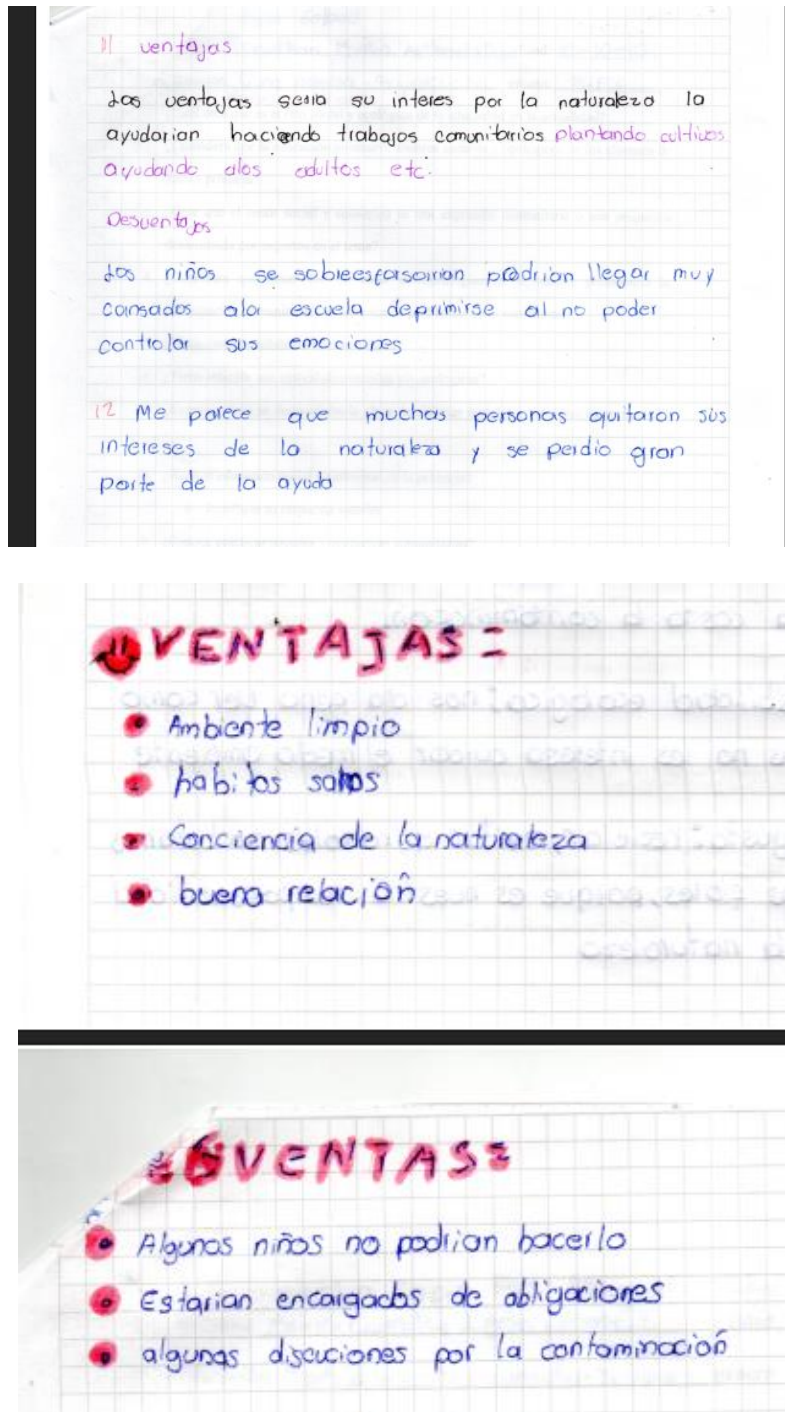 11 ventajas
Las ventajas seria su interes por la naturaleza la
ayudarian haciendo trabajos comunitarios plantando cultivos
ayudando alos adultos etc.
Desventajas
Los niños se sobreesforsarian podrian llegar muy
cansados ala escuela deprimirse al no poder
controlar sus emociones
12 Me parece que muchas personas quitaron sus
intereses de la naturaleza y se perdio gran
parte de la ayuda
VENTAJAS=
Ambiente limpio
habitos sanos
Conciencia de la naturaleza
buena relación
VENTAS=
Algunos niños no podrian hacerlo
Estarian encargados de obligaciones
algunas discuciones por la contaminación